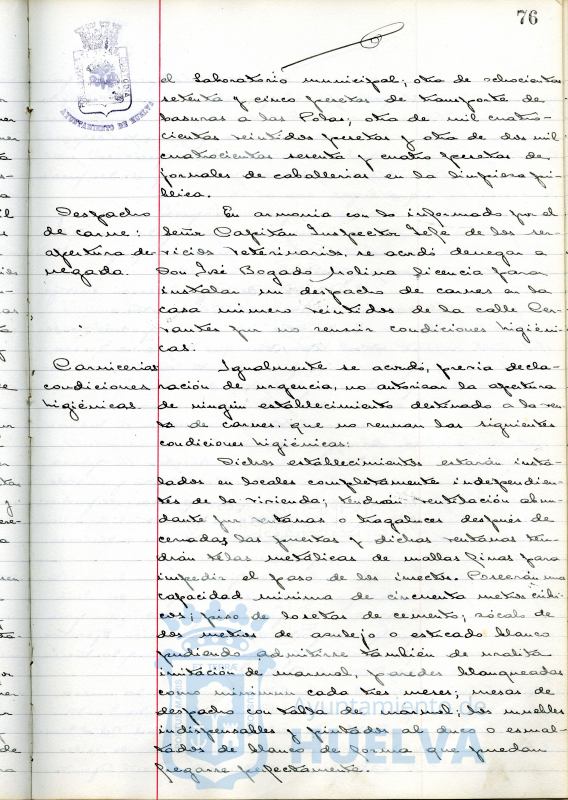 76
AYUNTAMIENTO DE HUELVA
el Laboratorio municipal; otra de ochocientas
setenta y cinco pesetas de transporte de
basuras a las Colas; otra de mil cuatro-
cientas veintidos pesetas y otra de dos mil
cuatrocientas sesenta y cuatro pesetas de
jornales de caballerias en la limpieza pú-
blica.
Despacho
de carne:
apertura de-
negada.
En armonia con lo informado por el
Señor Capitán Inspector Jefe de los ser-
vicios Veterinarios, se acordó denegar a
Don José Bogado Molina licencia para
instalar un despacho de carnes en la
casa número veintidos de la calle Cer-
vantes por no reunir condiciones higiéni-
cas.
Carnicerias
condiciones
higiénicas.
Igualmente se acordó, previa decla-
ración de urgencia, no autorizar la apertura
de ningún establecimiento destinado a la ven-
ta de carnes, que no reunan las siguientes
condiciones higiénicas:
Dichos establecimientos estarán insta-
lados en locales completamente independien-
tes de la vivienda; tendrán ventilación abun-
dante por ventanas o tragaluces después de
cerradas las puertas y dichas ventanas ten-
drán telas metálicas de mallas finas para
impedir el paso de los insectos. Poseerán una
capacidad mínima de cincuenta metros cúbi-
cos; piso de losetas de cemento; zócalo de
dos metros de azulejo o estucado blanco
pudiendo admitirse también de uralita
imitación de marmol, paredes blanqueadas
como minimun cada tres meses; mesas de
despacho con tabla de marmol; los muebles
indispensables y pintados al duco o esmal-
tados de blanco de forma que puedan
fregarse perfectamente.
Ayuntamiento de
HUELVA